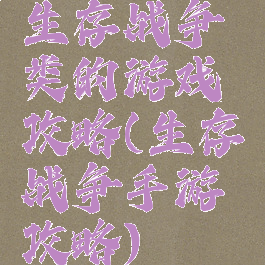 生存战争
类的游戏
攻略(生存
战争手游
攻略)